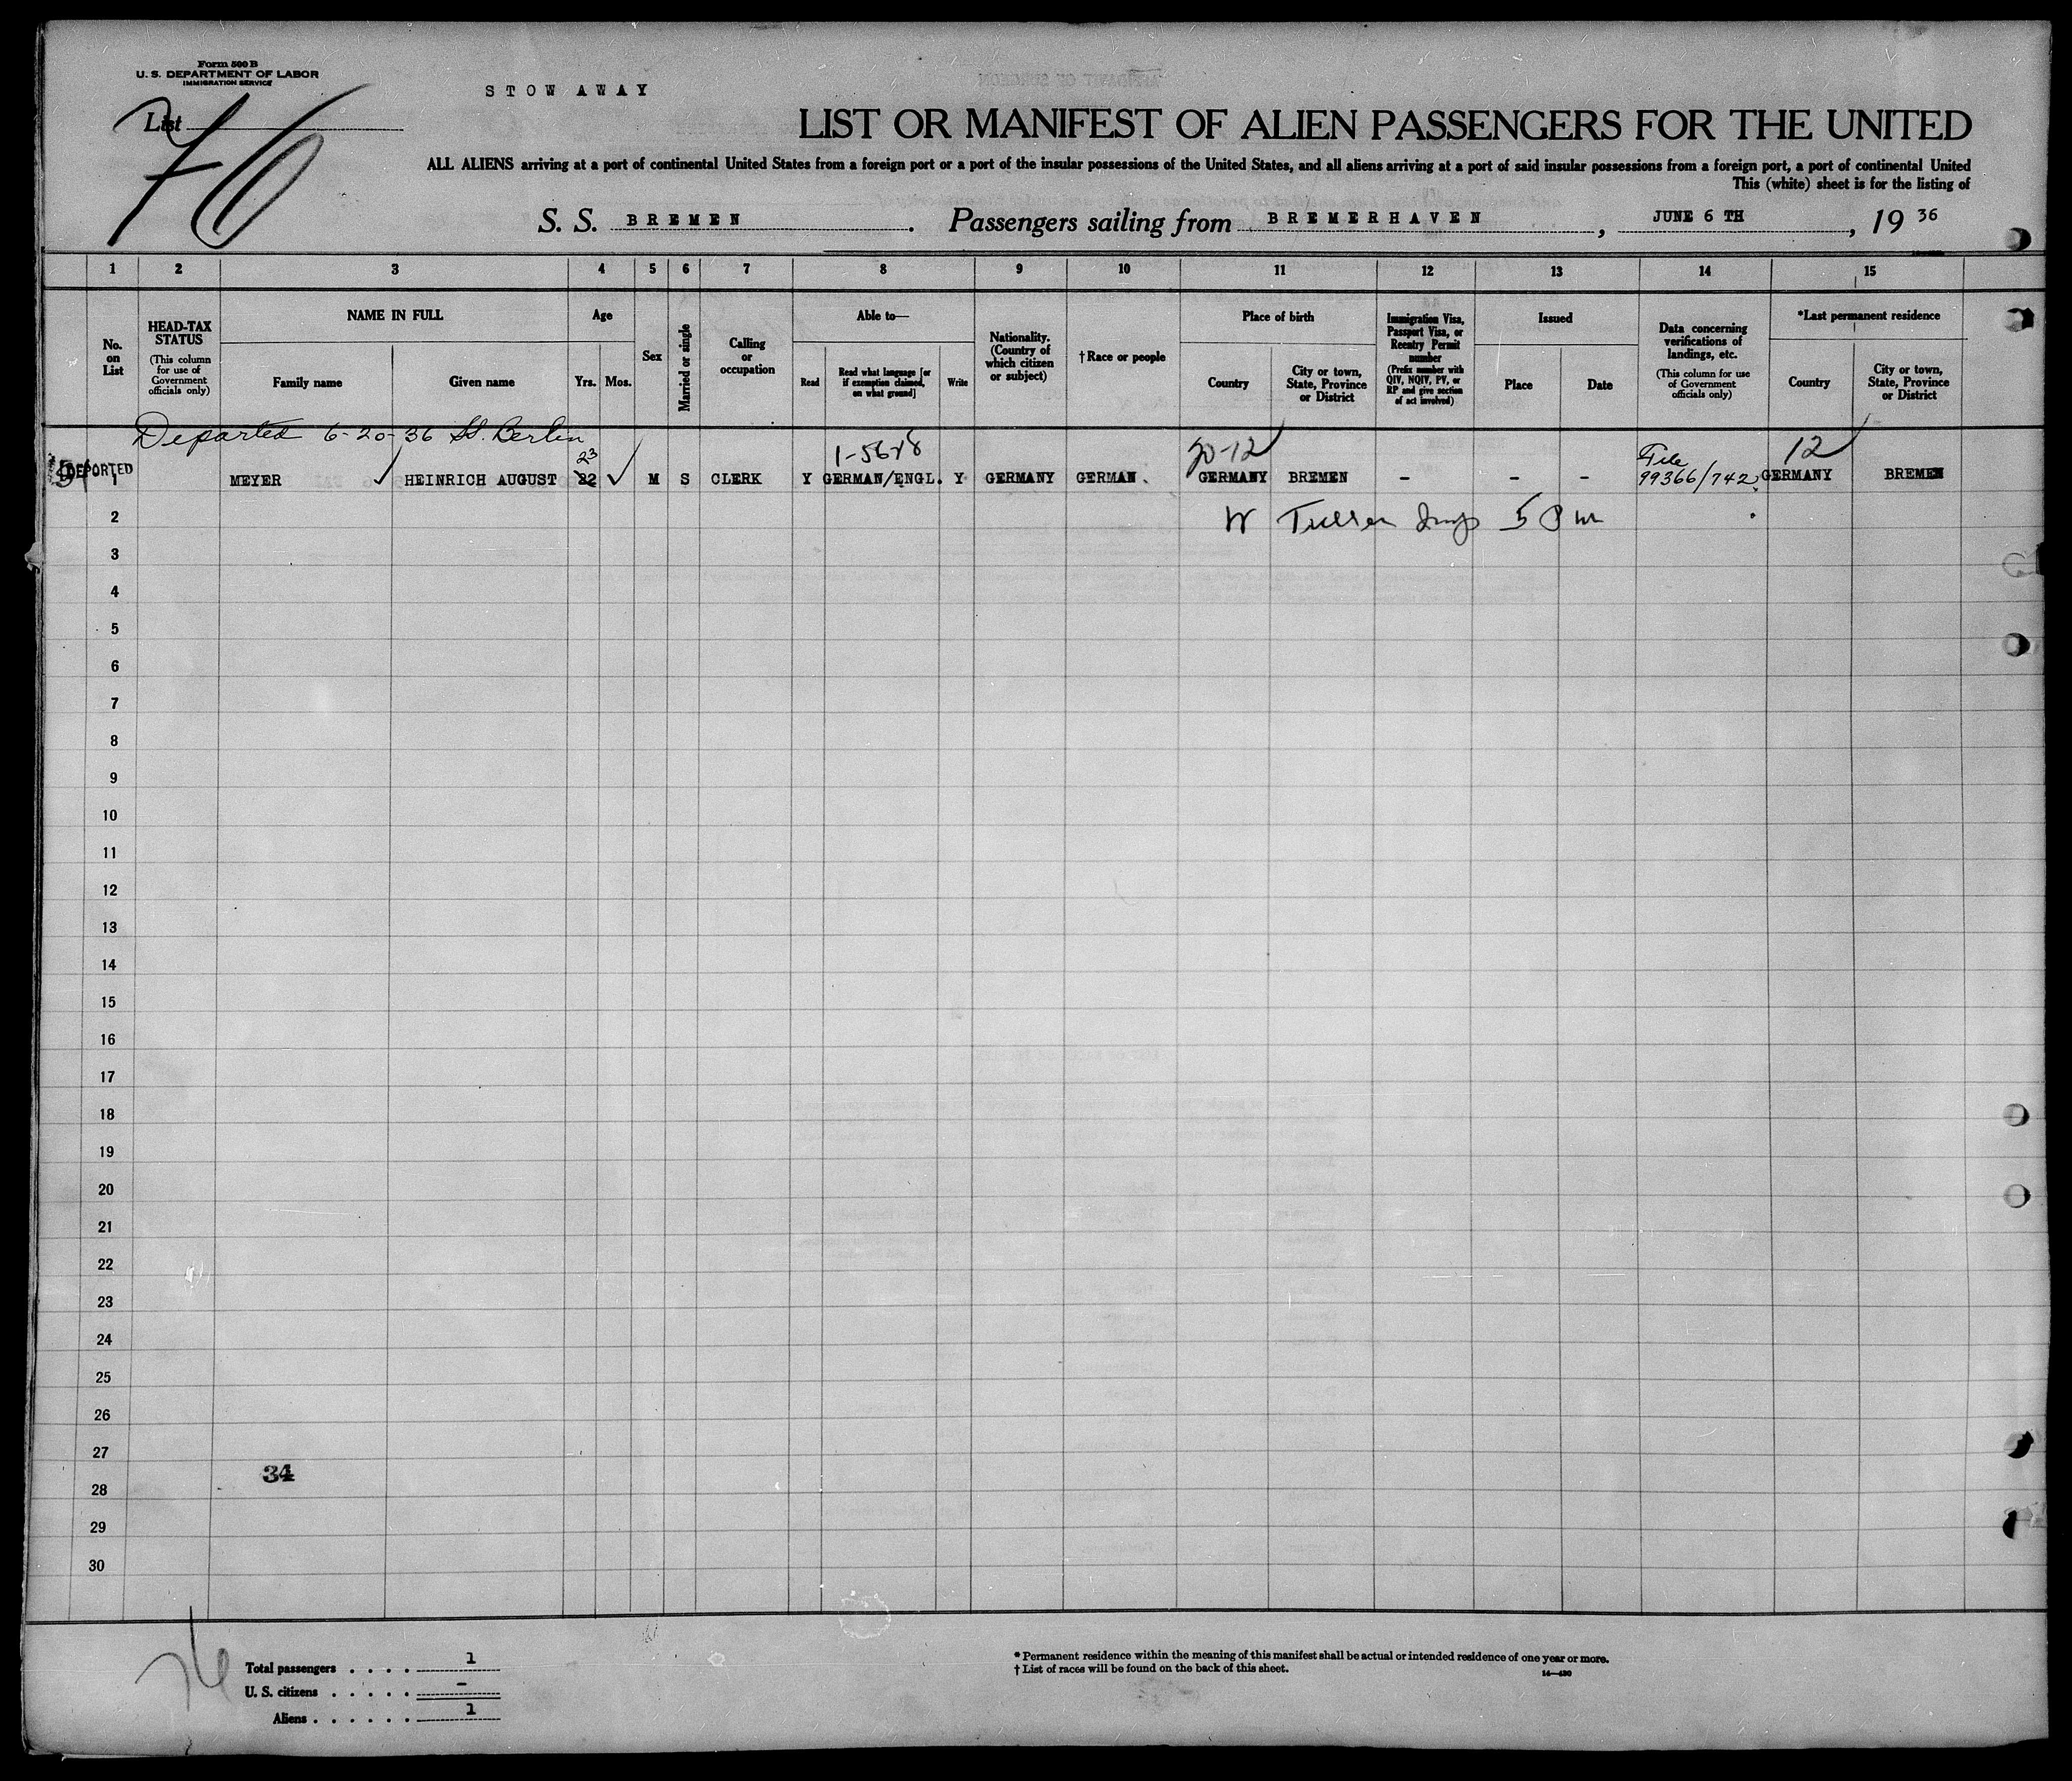 Form 500 B
U. S. DEPARTMENT OF LABOR
IMMIGRATION SERVICE
STOW AWAY
List 76
LIST OR MANIFEST OF ALIEN PASSENGERS FOR THE UNITED
ALL ALIENS arriving at a port of continental United States from a foreign port or a port of the insular possessions of the United States, and all aliens arriving at a port of said insular possessions from a foreign port, a port of continental United
This (white) sheet is for the listing of
S. S. BREMEN. Passengers sailing from BREMERHAVEN, JUNE 6 TH, 19 36
1 2 3 4 5 6 7 8 9 10 11 12 13 14 15
No. on List
HEAD-TAX STATUS
(This column for use of Government officials only)
NAME IN FULL
Family name Given name
Age
Yrs. Mos.
Sex
Married or single
Calling or occupation
Able to—
Read
Read what language [or if exemption claimed, on what ground]
Write
Nationality. (Country of which citizen or subject)
†Race or people
Place of birth
Country
City or town, State, Province or District
Immigration Visa, Passport Visa, or Reentry Permit number
(Prefix number with QIV, NQIV, PV, or RP and give section of act involved)
Issued
Place Date
Data concerning verifications of landings, etc.
(This column for use of Government officials only)
*Last permanent residence
Country
City or town, State, Province or District
Departed 6-20-36 SS. Berlin
23 20-12 File 12
DEPORTED
1 MEYER HEINRICH AUGUST 22 M S CLERK Y GERMAN/ENGL. Y GERMANY GERMAN GERMANY BREMEN - - - 99366/742 GERMANY BREMEN
2
3
4
5
6
7
8
9
10
11
12
13
14
15
16
17
18
19
20
21
22
23
24
25
26
27
34
28
29
30
76
Total passengers . . . . 1
U. S. citizens . . . . . -
Aliens . . . . . . 1
* Permanent residence within the meaning of this manifest shall be actual or intended residence of one year or more.
† List of races will be found on the back of this sheet.
14—430